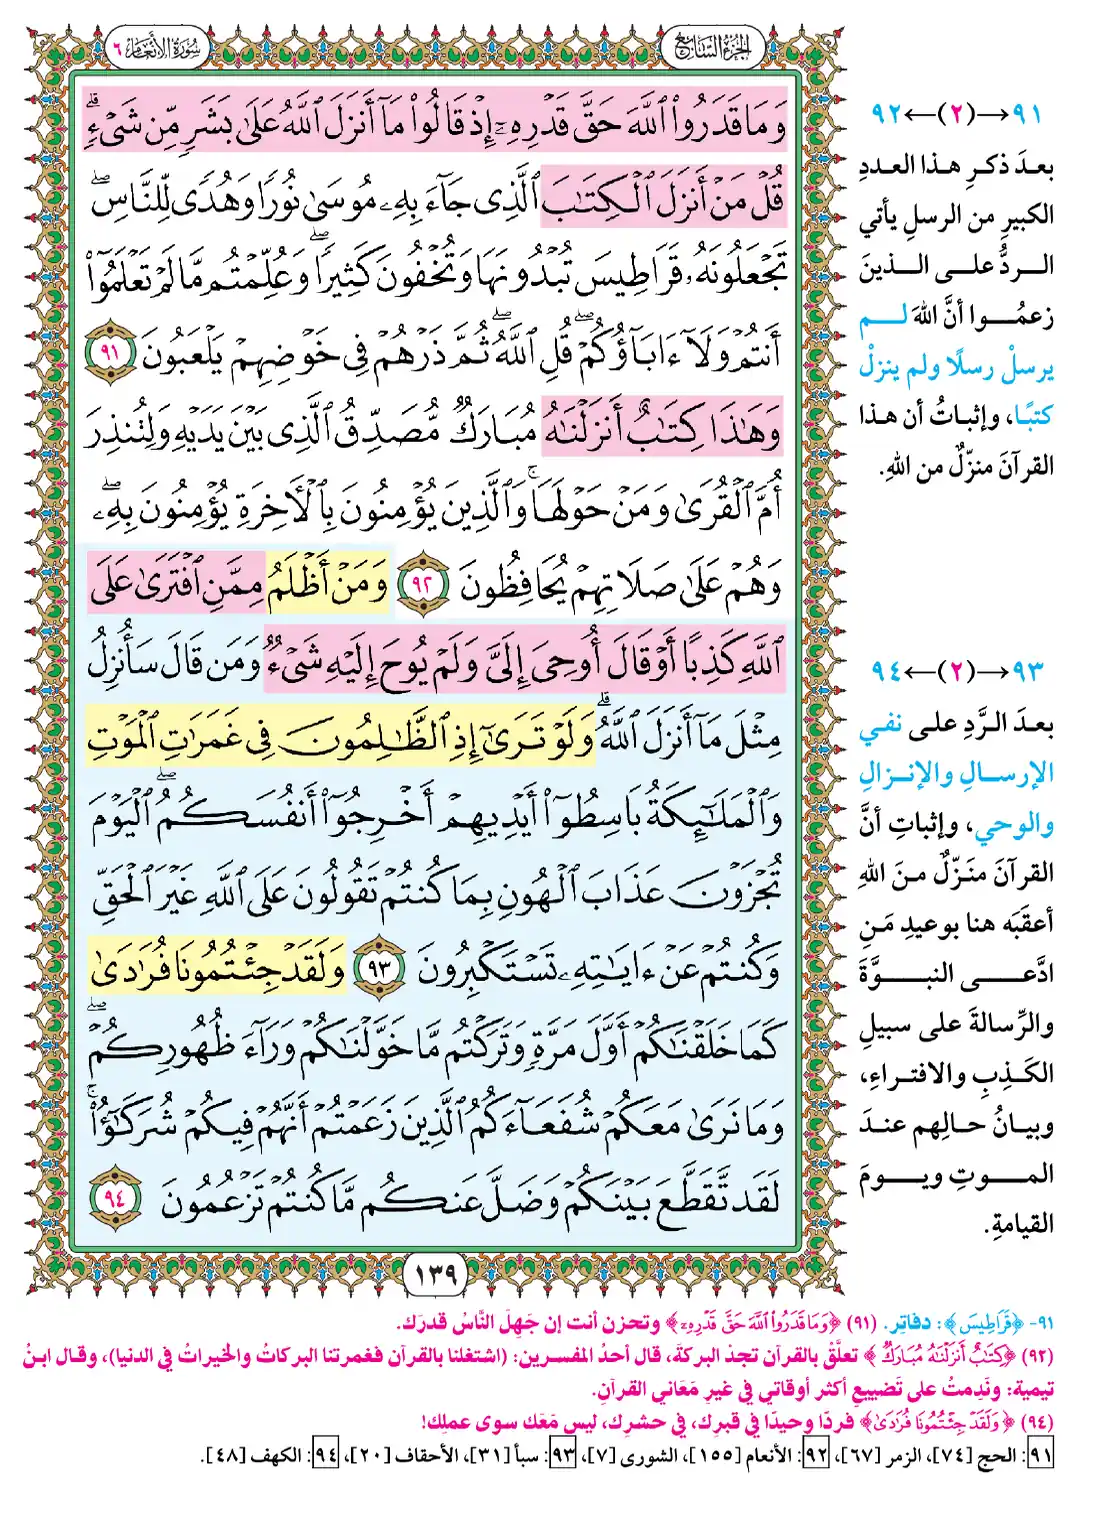 الجزء السابع
سورة الأنعام ٦
وَمَا قَدَرُوا۟ ٱللَّهَ حَقَّ قَدْرِهِۦٓ إِذْ قَالُوا۟ مَآ أَنزَلَ ٱللَّهُ عَلَىٰ بَشَرٍ مِّن شَىْءٍ ۗ
قُلْ مَنْ أَنزَلَ ٱلْكِتَـٰبَ ٱلَّذِى جَآءَ بِهِۦ مُوسَىٰ نُورًا وَهُدًى لِّلنَّاسِ ۖ
تَجْعَلُونَهُۥ قَرَاطِيسَ تُبْدُونَهَا وَتُخْفُونَ كَثِيرًا ۖ وَعُلِّمْتُم مَّا لَمْ تَعْلَمُوٓا۟
أَنتُمْ وَلَآ ءَابَآؤُكُمْ ۖ قُلِ ٱللَّهُ ۖ ثُمَّ ذَرْهُمْ فِى خَوْضِهِمْ يَلْعَبُونَ ٩١
وَهَـٰذَا كِتَـٰبٌ أَنزَلْنَـٰهُ مُبَارَكٌ مُّصَدِّقُ ٱلَّذِى بَيْنَ يَدَيْهِ وَلِتُنذِرَ
أُمَّ ٱلْقُرَىٰ وَمَنْ حَوْلَهَا ۚ وَٱلَّذِينَ يُؤْمِنُونَ بِٱلْـَٔاخِرَةِ يُؤْمِنُونَ بِهِۦ ۖ
وَهُمْ عَلَىٰ صَلَاتِهِمْ يُحَافِظُونَ ٩٢ وَمَنْ أَظْلَمُ مِمَّنِ ٱفْتَرَىٰ عَلَى
ٱللَّهِ كَذِبًا أَوْ قَالَ أُوحِىَ إِلَىَّ وَلَمْ يُوحَ إِلَيْهِ شَىْءٌ وَمَن قَالَ سَأُنزِلُ
مِثْلَ مَآ أَنزَلَ ٱللَّهُ ۗ وَلَوْ تَرَىٰٓ إِذِ ٱلظَّـٰلِمُونَ فِى غَمَرَٰتِ ٱلْمَوْتِ
وَٱلْمَلَـٰٓئِكَةُ بَاسِطُوٓا۟ أَيْدِيهِمْ أَخْرِجُوٓا۟ أَنفُسَكُمُ ۖ ٱلْيَوْمَ
تُجْزَوْنَ عَذَابَ ٱلْهُونِ بِمَا كُنتُمْ تَقُولُونَ عَلَى ٱللَّهِ غَيْرَ ٱلْحَقِّ
وَكُنتُمْ عَنْ ءَايَـٰتِهِۦ تَسْتَكْبِرُونَ ٩٣ وَلَقَدْ جِئْتُمُونَا فُرَٰدَىٰ
كَمَا خَلَقْنَـٰكُمْ أَوَّلَ مَرَّةٍ وَتَرَكْتُم مَّا خَوَّلْنَـٰكُمْ وَرَآءَ ظُهُورِكُمْ ۖ
وَمَا نَرَىٰ مَعَكُمْ شُفَعَآءَكُمُ ٱلَّذِينَ زَعَمْتُمْ أَنَّهُمْ فِيكُمْ شُرَكَـٰٓؤُا۟ ۚ
لَقَد تَّقَطَّعَ بَيْنَكُمْ وَضَلَّ عَنكُم مَّا كُنتُمْ تَزْعُمُونَ ٩٤
١٣٩
٩١→(٢)←٩٢
بعدَ ذكرِ هذا العددِ
الكبيرِ من الرسلِ يأتي
الردُّ على الذينَ
زعمُوا أنَّ اللهَ لم
يرسلْ رسلًا ولم ينزلْ
كتبًا، وإثباتُ أن هذا
القرآنَ منزّلٌ من اللهِ.
٩٣→(٢)←٩٤
بعدَ الرَّدِ على نفي
الإرسالِ والإنزالِ
والوحي، وإثباتِ أنَّ
القرآنَ منَزّلٌ منَ اللهِ
أعقبَه هنا بوعيدِ مَنِ
ادَّعى النبوَّةَ
والرِّسالةَ على سبيلِ
الكَذِبِ والافتراءِ،
وبيانُ حالِهم عندَ
الموتِ ويومَ
القيامةِ.
٩١- ﴿قَرَاطِيسَ﴾: دفاتِر. (٩١) ﴿وَمَا قَدَرُوا۟ ٱللَّهَ حَقَّ قَدْرِهِۦٓ﴾ وتحزن أنت إن جَهِلَ النَّاسُ قدرَك.
(٩٢) ﴿كِتَـٰبٌ أَنزَلْنَـٰهُ مُبَارَكٌ﴾ تعلَّقْ بالقرآن تجدْ البركةَ، قال أحدُ المفسرين: (اشتغلنا بالقرآن فغمرتنا البركاتُ والخيراتُ في الدنيا)، وقال ابنُ
تيمية: ونَدِمتُ على تَضييعِ أكثر أوقاتي في غيرِ مَعَاني القرآنِ.
(٩٤) ﴿وَلَقَدْ جِئْتُمُونَا فُرَٰدَىٰ﴾ فردًا وحيدًا في قبرِك، في حشرِك، ليس مَعَك سوى عملِك!
٩١: الحج [٧٤]، الزمر [٦٧]، ٩٢: الأنعام [١٥٥]، الشورى [٧]، ٩٣: سبأ [٣١]، الأحقاف [٢٠]، ٩٤: الكهف [٤٨].